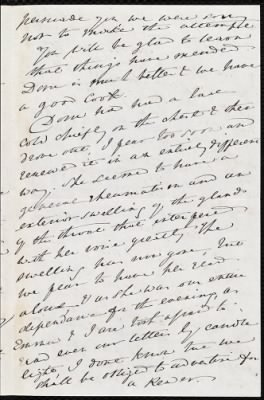 persuade you we were
not to make the attempt
You will be glad to learn
that things have mended
Dora is much better & we have
a good Cook
Dora has had a bad
cold chiefly on the chest & then
drove out, I fear too soon and
renewed it in an entirely different
way. She seems to have a
general rheumatism and an
exterior swelling of the glands
of the throat that interferes
with her voice greatly. The
swelling has now gone, but
we fear to have her read
aloud. & as she was our entire
dependance for the evening, as
Emma & I are both afraid to
read even our letters by candle
light, I don't know but we
shall be obliged to advertise for
a Reader